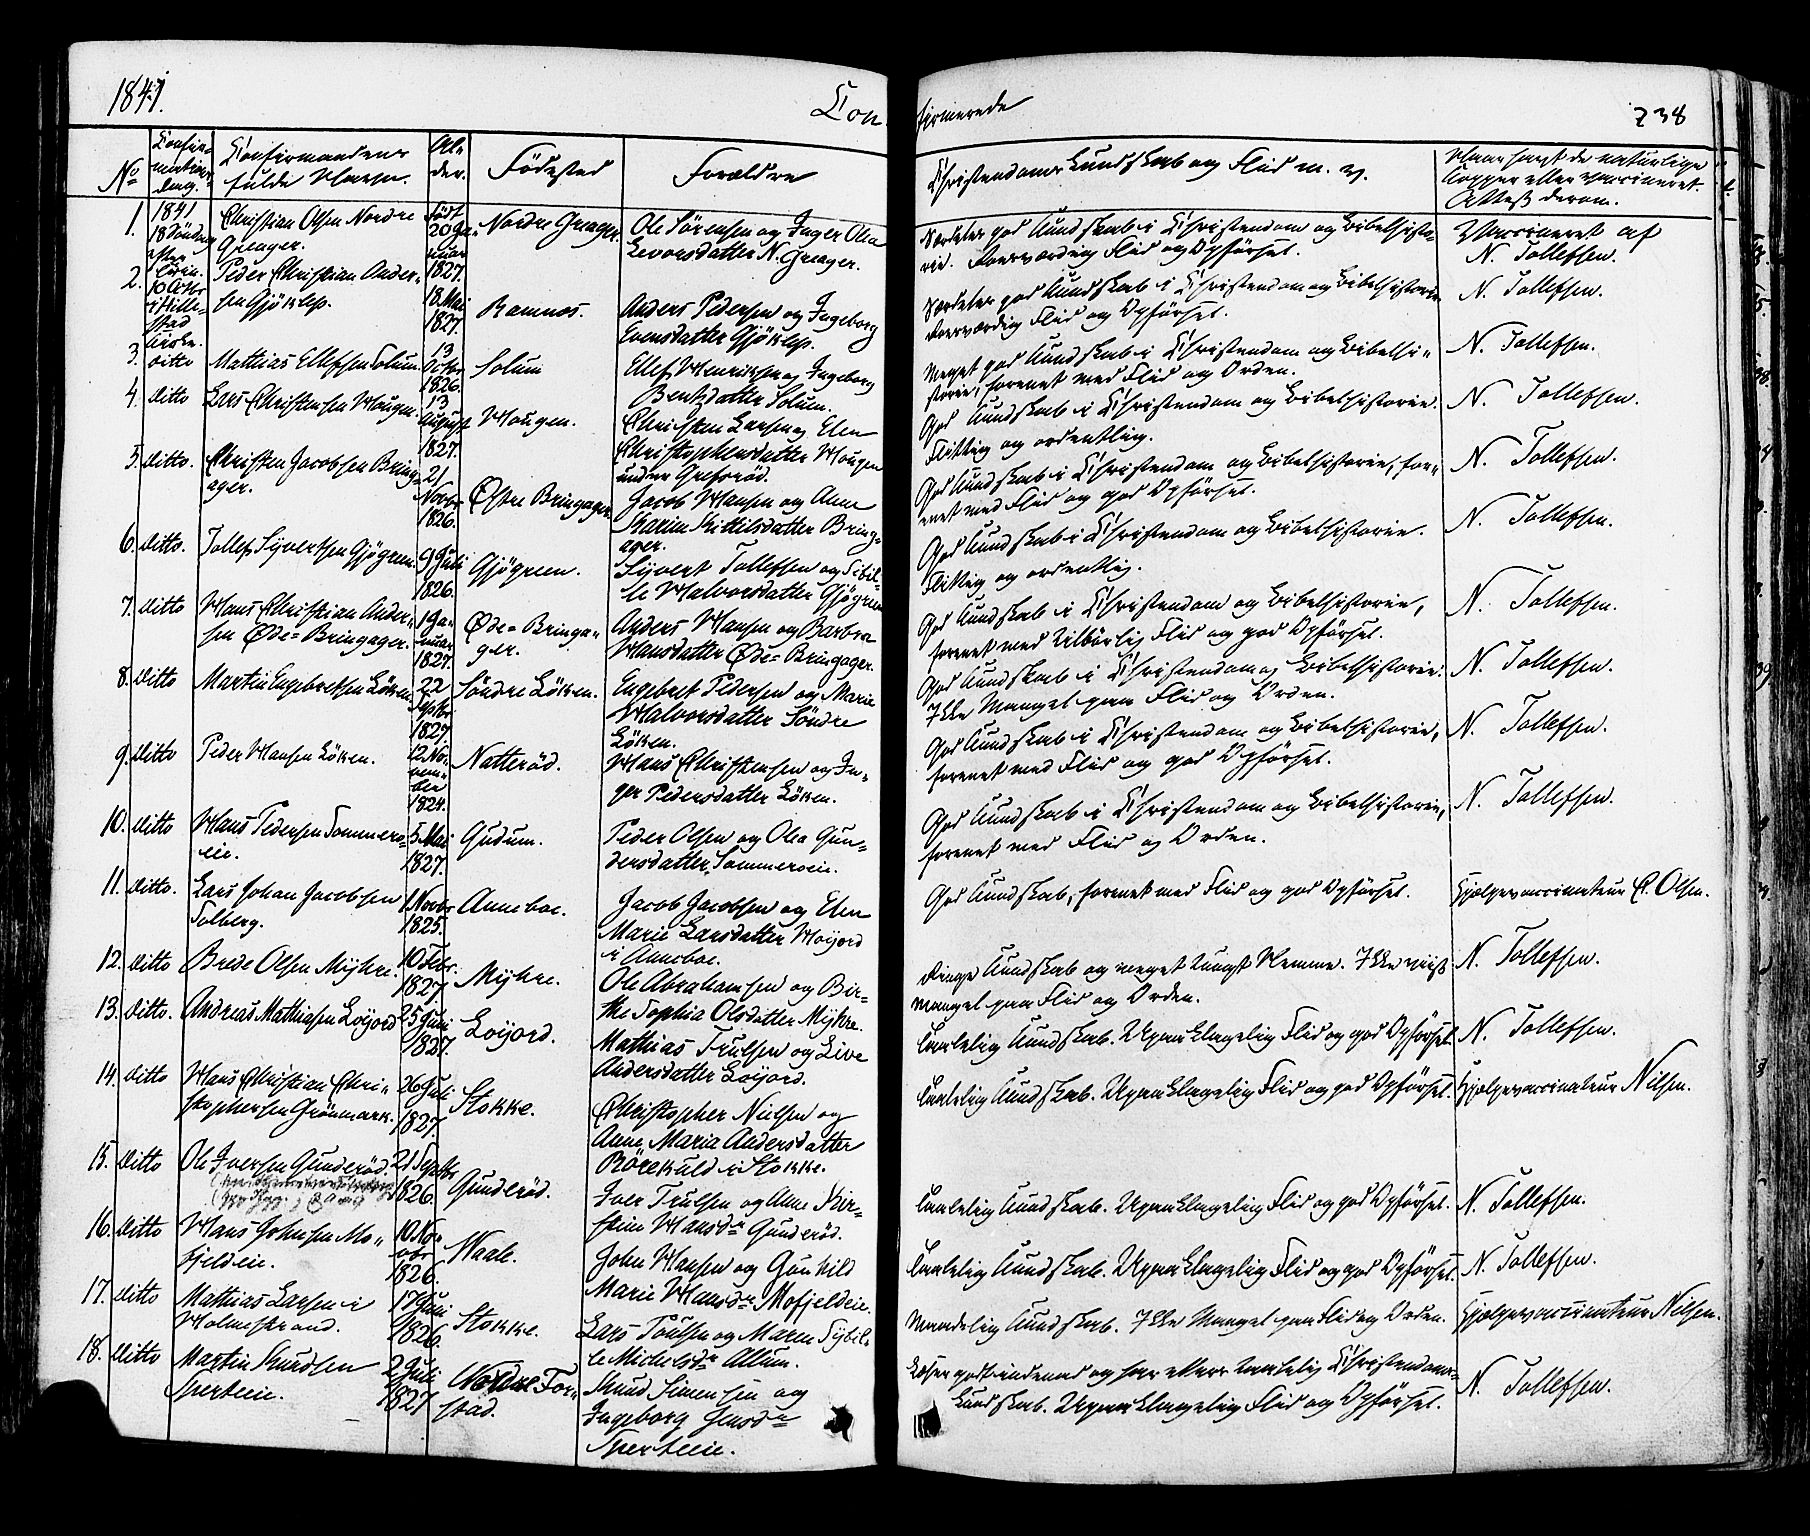 1841.
Con
firmerede
238
No
Confir-
mations-
dag.
Confirmandens
fulde Navn.
Al-
der.
Födested
Forældre
Christendoms Kundskab og Flid m. v.
Naar havt de naturlige
Kopper eller vaccineret.
Attest derom.
1.
1841
18 Söndag
efter
Trin.
10 Octbr
i Hille-
stad
Kirke.
Christian Olsen Nordre
Greager.
Född
20 Ja-
nuar
1827.
Nordre Greager.
Ole Sörensen og Inger Olea
Levorsdatter N. Greager.
Særdeles god Kundskab i Christendom og Bibelhisto-
rie. Roesværdig Flid og Opförsel.
Vaccineret af
N. Tollefsen.
2.
Peder Christian Ander-
sen Gjöklep.
18. Mai
1827.
Ramnes.
Anders Pedersen og Ingeborg
Evensdatter Gjöklep.
Særdeles god Kundskab i Christendom og Bibelhistorie
Roesværdig Flid og Opförsel.
N. Tollefsen.
3.
ditto
Mathias Ellefsen Solum.
13
Octbr
1826.
Solum
Ellef Henriksen og Ingeborg
Bentsdatter Solum.
Meget god Kundskab i Christendom og Bibelhi-
storie, forenet med Flid og Orden.
N. Tollefsen.
4.
ditto
Lars Christensen Haugen.
13
August
1827.
Haugen.
Christen Larsen og Elen
Christophersdatter Haugen
under Grefsröd.
God Kundskab i Christendom og Bibelhistorie.
Flittig og ordentlig.
N. Tollefsen.
5.
ditto.
Christen Jacobsen Bring-
ager.
21
Novbr
1826.
Østre Bringager.
Jacob Hansen og Anne
Karine Kittilsdatter Bring-
ager.
God Kundskab i Christendom og Bibelhistorie, for-
enet med Flid og god Opförsel.
N. Tollefsen.
6.
ditto.
Tollef Syvertsen Gjögreen.
9 Juli
1826.
Gjögreen.
Syvert Tollefsen og Sibil-
le Halvorsdatter Gjögreen
God Kundskab i Christendom og Bibelhistorie.
Flittig og ordentlig.
N. Tollefsen.
7.
ditto
Hans Christian Ander-
sen Øde=Bringager.
1 Ja-
nuar
1827.
Øde=Bringa-
ger.
Anders Hansen og Barbra
Hansdatter Øde=Bringager.
God Kundskab i Christendom og Bibelhistorie,
forenet med tilbörlig Flid og god Opförsel.
N. Tollefsen.
8.
ditto
Martin Engebretsen Löken
22
Septbr
1827.
Söndre Löken.
Engebret Pedersen og Marie
Halvorsdatter Söndre
Löken.
God Kundskab i Christendom og Bibelhistorie.
Ikke Mangel paa Flid og Orden.
N. Tollefsen.
9.
ditto
Peder Hansen Löken.
12. No-
vem-
ber
1824.
Natteröd.
Hans Christensen og In-
ger Pedersdatter Löken.
God Kundskab i Christendom og Bibelhistorie,
forenet med Flid og god Opförsel.
N. Tollefsen.
10.
ditto
Hans Pedersen Sommers-
eie.
5. Mai
1827.
Gudum.
Peder Olsen og Olea Gun-
dersdatter, Sommerseie.
God Kundskab i Christendom og Bibelhistorie,
forenet med Flid og Orden.
N. Tollefsen.
11.
ditto.
Lars Johan Jacobsen
Solberg.
1 Novbr
1825.
Anneboe.
Jacob Jacobsen og Elen
Marie Larsdatter Höijord
i Anneboe.
God Kundskab, forenet med Flid og god Opförsel.
Hjelpevaccinateur C. Olsen.
12.
ditto
Brede Olsen Mÿhre.
10 Febr.
1827.
Mÿhre.
Ole Abrahamsen og Bir-
the Sophia Olsdatter Mÿhre.
Ringe Kundskab og meget tungt Nemme. Ikke viist
Mangel paa Flid og Orden.
N. Tollefsen.
13.
ditto.
Andreas Mathiasen Loÿord
25 Juni
1827.
Loÿord.
Mathias Trulsen og Live
Andersdatter Loÿord.
Taalelig Kundskab. Upaaklagelig Flid og god Opförsel.
N. Tollefsen.
14.
ditto
Hans Christian Chri-
stophersen Grönmark.
26 Juli
1827.
Stokke.
Christopher Nielsen og
Anne Maria Andersdatter
Rörekuld i Stokke.
Taalelig Kundskab. Upaaklagelig Flid og god Opförsel.
Hjelpevaccinateur Nilsen.
15.
ditto
Ole Iversen Gunderöd.
21 Septbr
1826.
Gunderöd.
Iver Trulsen og Anne Kir-
stine Hansdr Gunderöd.
Taalelig Kundskab. Upaaklagelig Flid og god Opförsel.
N. Tollefsen.
16.
ditto
Hans Johnsen Mo-
fjeldeie.
10 No-
vbr
1826.
Waale.
John Hansen og Gunhild
Marie Hansdr Mofjeldeie.
Taalelig Kundskab. Upaaklagelig Flid og god Opförsel.
N. Tollefsen.
17.
ditto
Mathias Larsen i
Holmestrand.
17 Juni
1826.
Stokke.
Lars Poulsen og Maren Sybil-
le Michelsdr Allum.
Maadelig Kundskab. Ikke Mangel paa Flid og Orden.
Hjelpevaccinateur Nilsen.
18.
ditto
Martin Knudsen
Sperteeie.
2 Juli
1827
Nordre For-
stad.
Knud Simensen og
Ingeborg Jensdr
Sperteeie.
Læser godt indenad og har ellers taalelig Christendoms-
Kundskab. Upaaklagelig Flid og Opförsel.
N. Tollefsen.